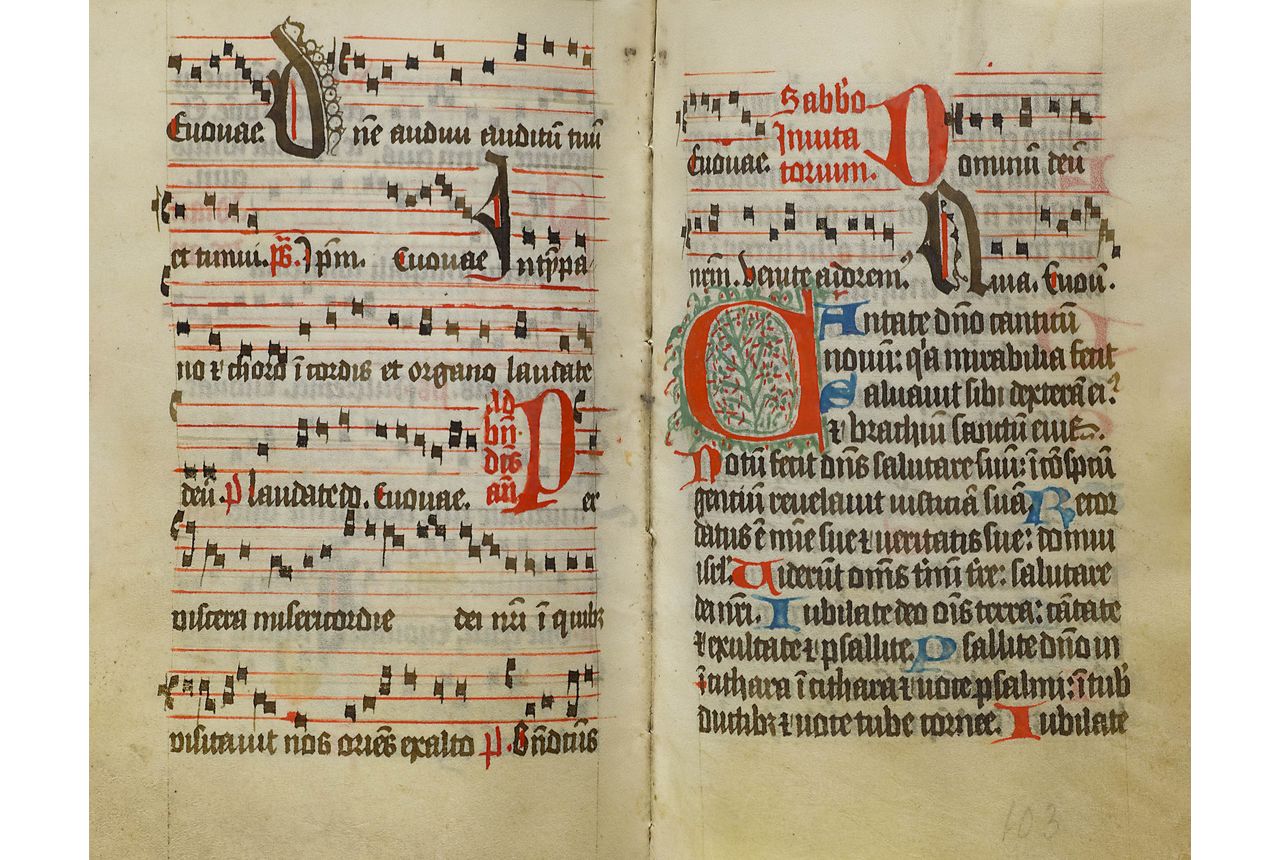 Euouae. Dne audiui auditu tuu
et timui. ps. Ipm. Euouae In tympa
no & choro i cordis et organo laudate
deu. p laudate do. Euouae. Ad bn dis an Per
viscera misericordie dei nri i quibz
visitauit nos oriens exalto p. Bndictus
Euouae. Sabbo Inuita torium. Dominum deu
nrm. venite adorem9. Euou.
Cantate dno canticu
nouu: qa mirabilia fecit
Saluauit sibi dextera ei9
& brachiu sanctu eius.
Notu fecit dns salutare suu: i cospcu
gentiu reuelauit iusticia sua Recor
datus e mie sue & ueritatis sue: domui
isrl'. Viderut oms tmi tre: salutare
dei nri. Iubilate deo ois terra: catate
& exultate & psallite. Psallite dno in
cithara i cithara & uoce psalmi: i tub
ductilibz & uoce tube cornee. Iubilate
103